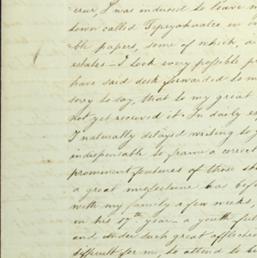 I was induced to leave m
town called Tepeyahualco, in
papers, some of which, a
relates - I took every possible p
have said desk forwarded to m
sorry to say, that to my great
not yet received it. In daily ex
I naturally delay'd writing to y
indispensable to frame a correct
prominent features of those
a great misfortune has befa
with my family a few weeks,
in his 17th year a youth full
and under such great affliction
difficult for me, to attend to b